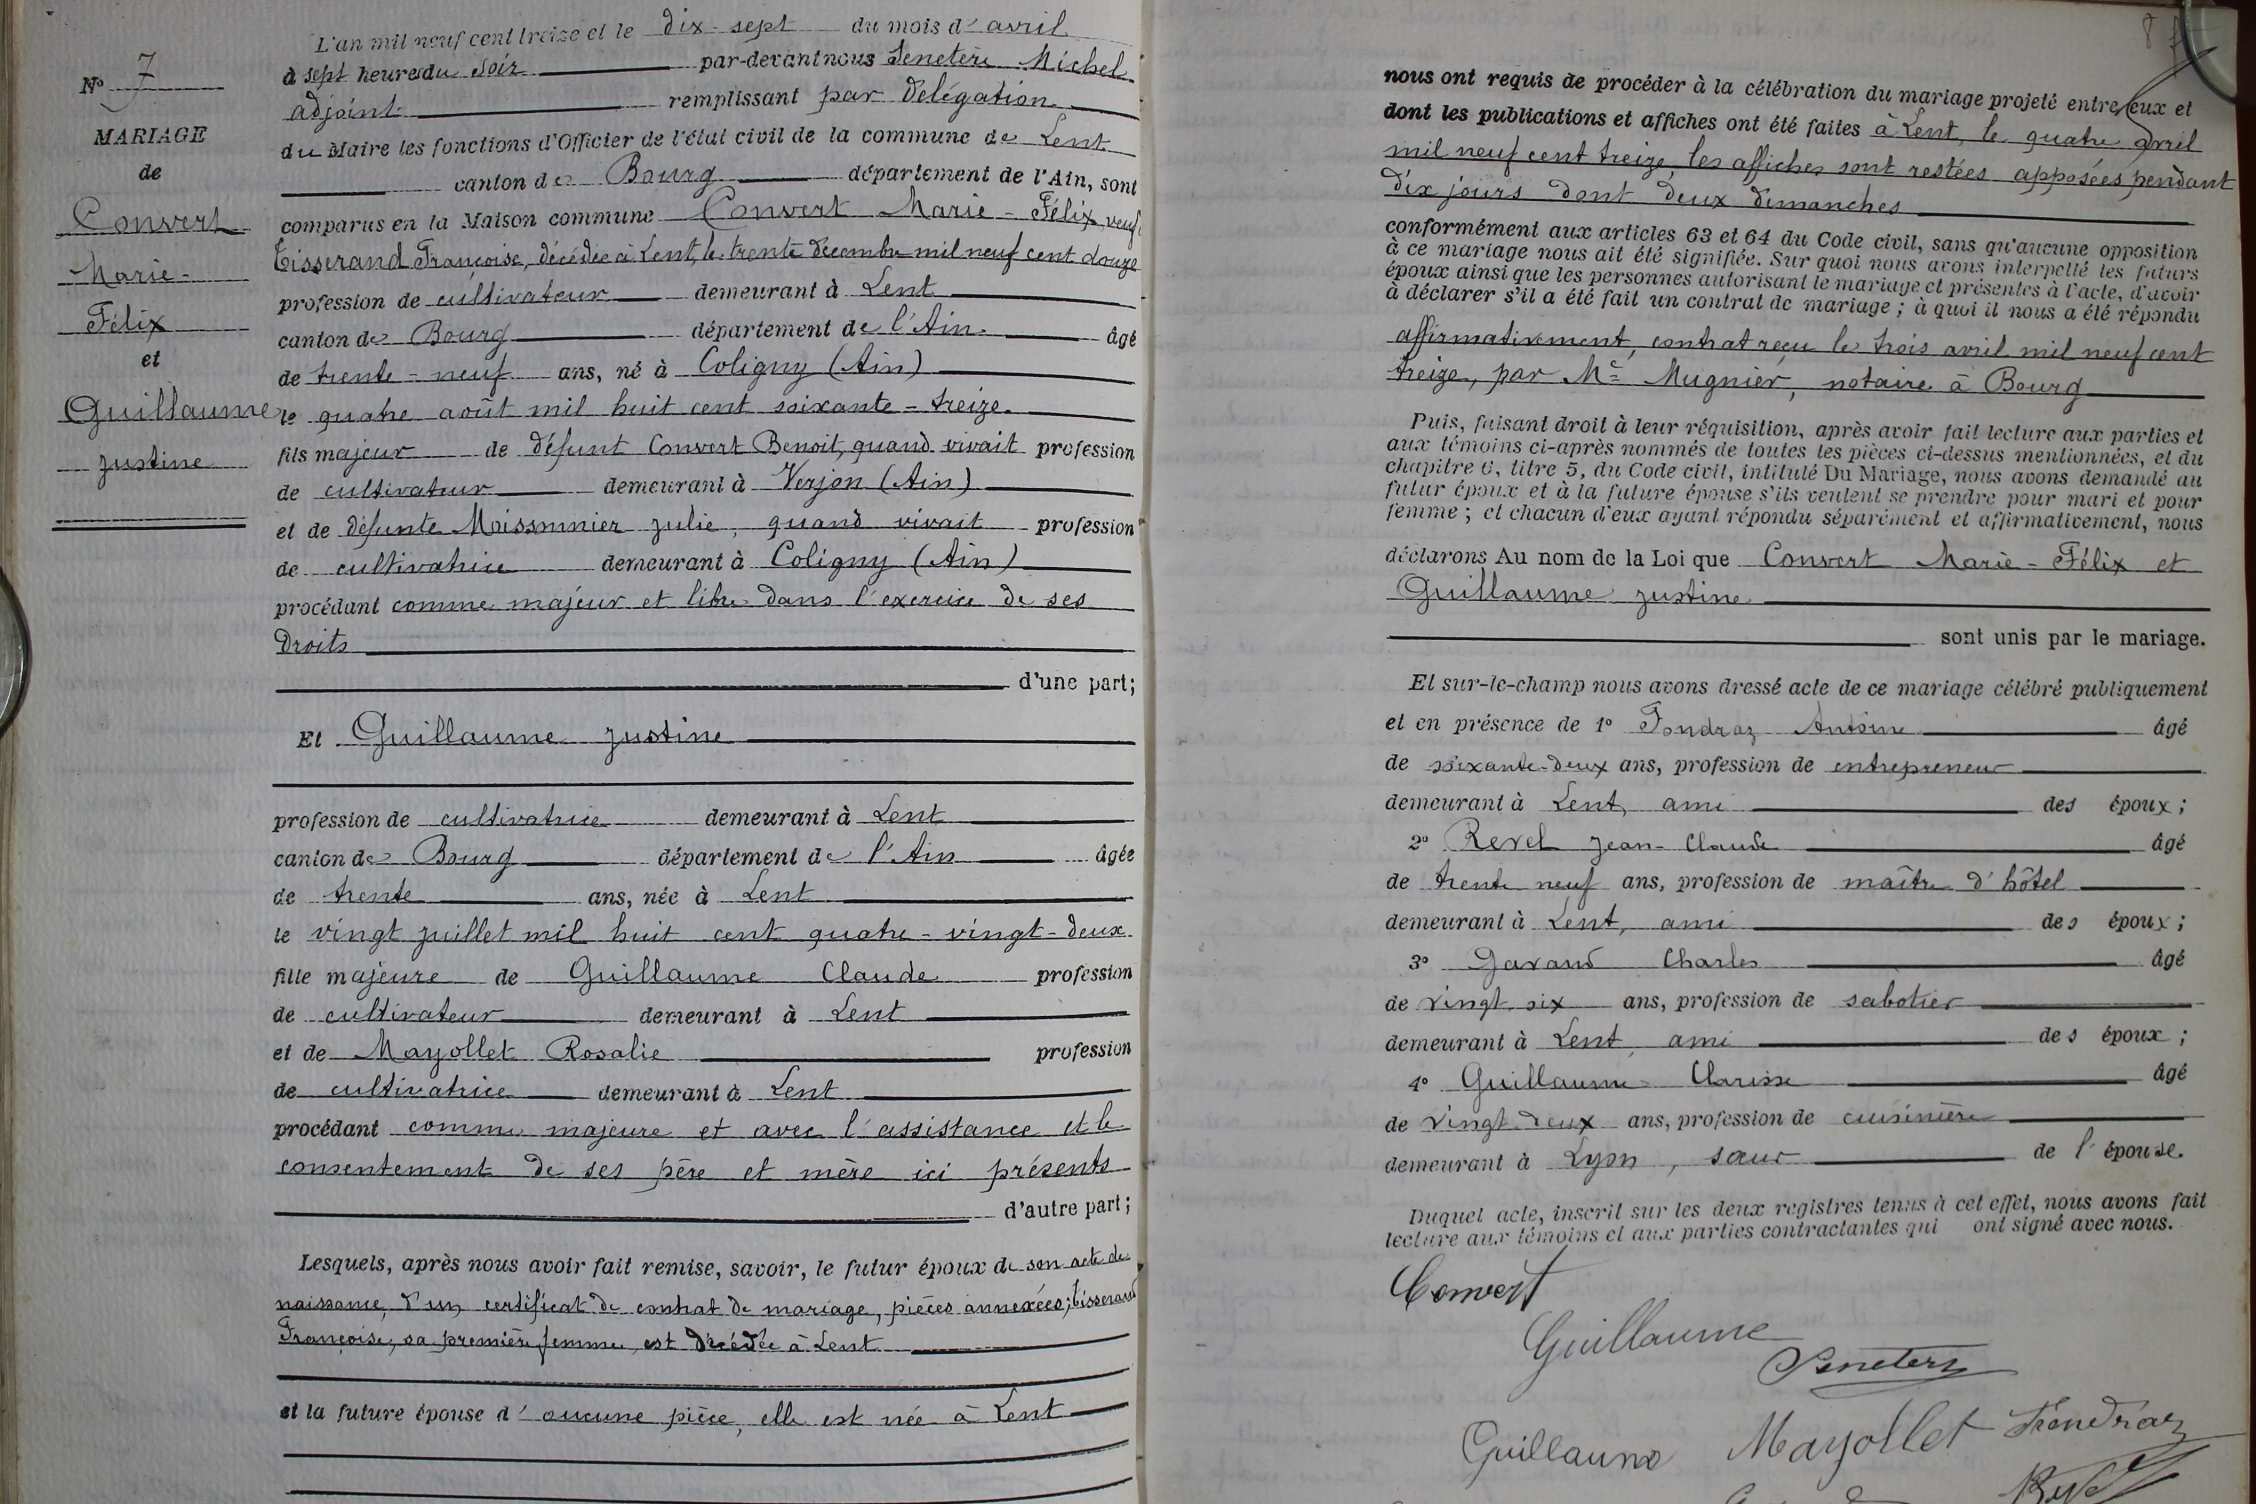 L'an mil neuf cent treize et le dix-sept du mois d'avril
à sept heures du soir par-devant nous Seneterre Michel
adjoint remplissant par délégation
du Maire les fonctions d'Officier de l'état civil de la commune de Lent
canton de Bourg département de l'Ain, sont
comparus en la Maison commune Convert Marie-Félix, veuf
Tisserand Françoise, décédée à Lent, le trente décembre mil neuf cent douze
profession de cultivateur demeurant à Lent
canton de Bourg département de l'Ain. âgé
de trente-neuf ans, né à Coligny (Ain)
le quatre août mil huit cent soixante-treize.
fils majeur de défunt Convert Benoit, quand vivait profession
de cultivateur demeurant à Verjon (Ain)
et de défunte Moissonnier Julie, quand vivait profession
de cultivatrice demeurant à Coligny (Ain)
procédant comme majeur et libre dans l'exercice de ses
droits
d'une part;
Et Guillaume Justine
profession de cultivatrice demeurant à Lent
canton de Bourg département de l'Ain âgée
de trente ans, née à Lent
le vingt juillet mil huit cent quatre-vingt-deux
fille majeure de Guillaume Claude profession
de cultivateur demeurant à Lent
et de Mayollet Rosalie profession
de cultivatrice demeurant à Lent
procédant comme majeure et avec l'assistance et le
consentement de ses père et mère ici présents
d'autre part;
Lesquels, après nous avoir fait remise, savoir, le futur époux de son acte de
naissance, d'un certificat de contrat de mariage, pièces annexées; Tisserand
Françoise, sa première femme, est décédée à Lent
et la future épouse d'aucune pièce, elle est née à Lent
N° 7
MARIAGE
de
Convert
Marie-
Félix
et
Guillaume
Justine
nous ont requis de procéder à la célébration du mariage projeté entre eux et
dont les publications et affiches ont été faites à Lent, le quatre avril
mil neuf cent treize, les affiches sont restées apposées pendant
dix jours dont deux dimanches
conformément aux articles 63 et 64 du Code civil, sans qu'aucune opposition
à ce mariage nous ait été signifiée. Sur quoi nous avons interpellé les futurs
époux ainsi que les personnes autorisant le mariage et présentes à l'acte, d'avoir
à déclarer s'il a été fait un contrat de mariage; à quoi il nous a été répondu
affirmativement, contrat reçu le trois avril mil neuf cent
treize, par Me Mugnier, notaire à Bourg
Puis, faisant droit à leur réquisition, après avoir fait lecture aux parties et
aux témoins ci-après nommés de toutes les pièces ci-dessus mentionnées, et du
chapitre 6, titre 5, du Code civil, intitulé Du Mariage, nous avons demandé au
futur époux et à la future épouse s'ils veulent se prendre pour mari et pour
femme; et chacun d'eux ayant répondu séparément et affirmativement, nous
déclarons Au nom de la Loi que Convert Marie-Félix et
Guillaume Justine
sont unis par le mariage.
Et sur-le-champ nous avons dressé acte de ce mariage célébré publiquement
et en présence de 1° Fondraz Antoine âgé
de soixante-deux ans, profession de entrepreneur
demeurant à Lent, ami des époux;
2° Revel Jean-Claude âgé
de trente neuf ans, profession de maître d'hôtel
demeurant à Lent, ami des époux;
3° Gavand Charles âgé
de vingt-six ans, profession de sabotier
demeurant à Lent, ami des époux;
4° Guillaume Clarisse âgé
de vingt-deux ans, profession de cuisinière
demeurant à Lyon, sœur de l'épouse.
Duquel acte, inscrit sur les deux registres tenus à cet effet, nous avons fait
lecture aux témoins et aux parties contractantes qui ont signé avec nous.
Convert
Guillaume
Guillaume Mayollet